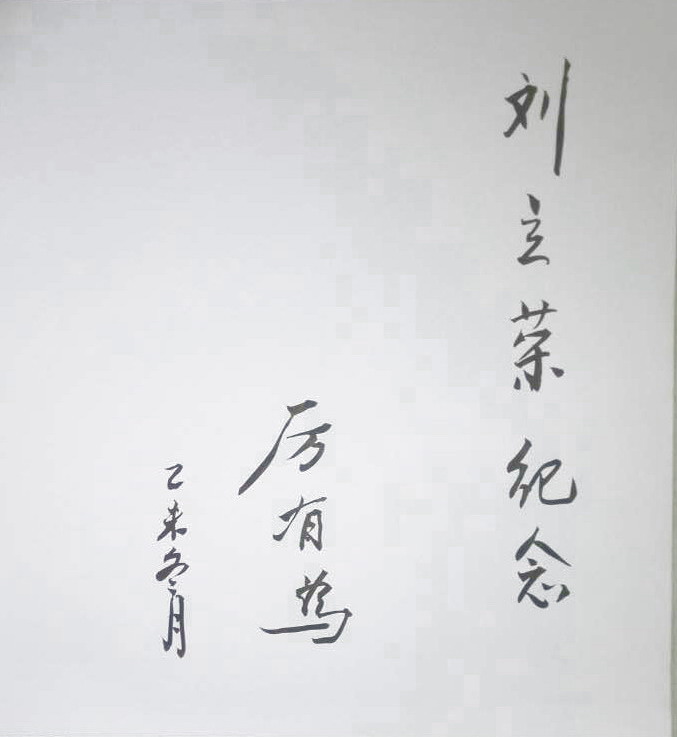 刘立荣纪念
厉有為
乙未冬月